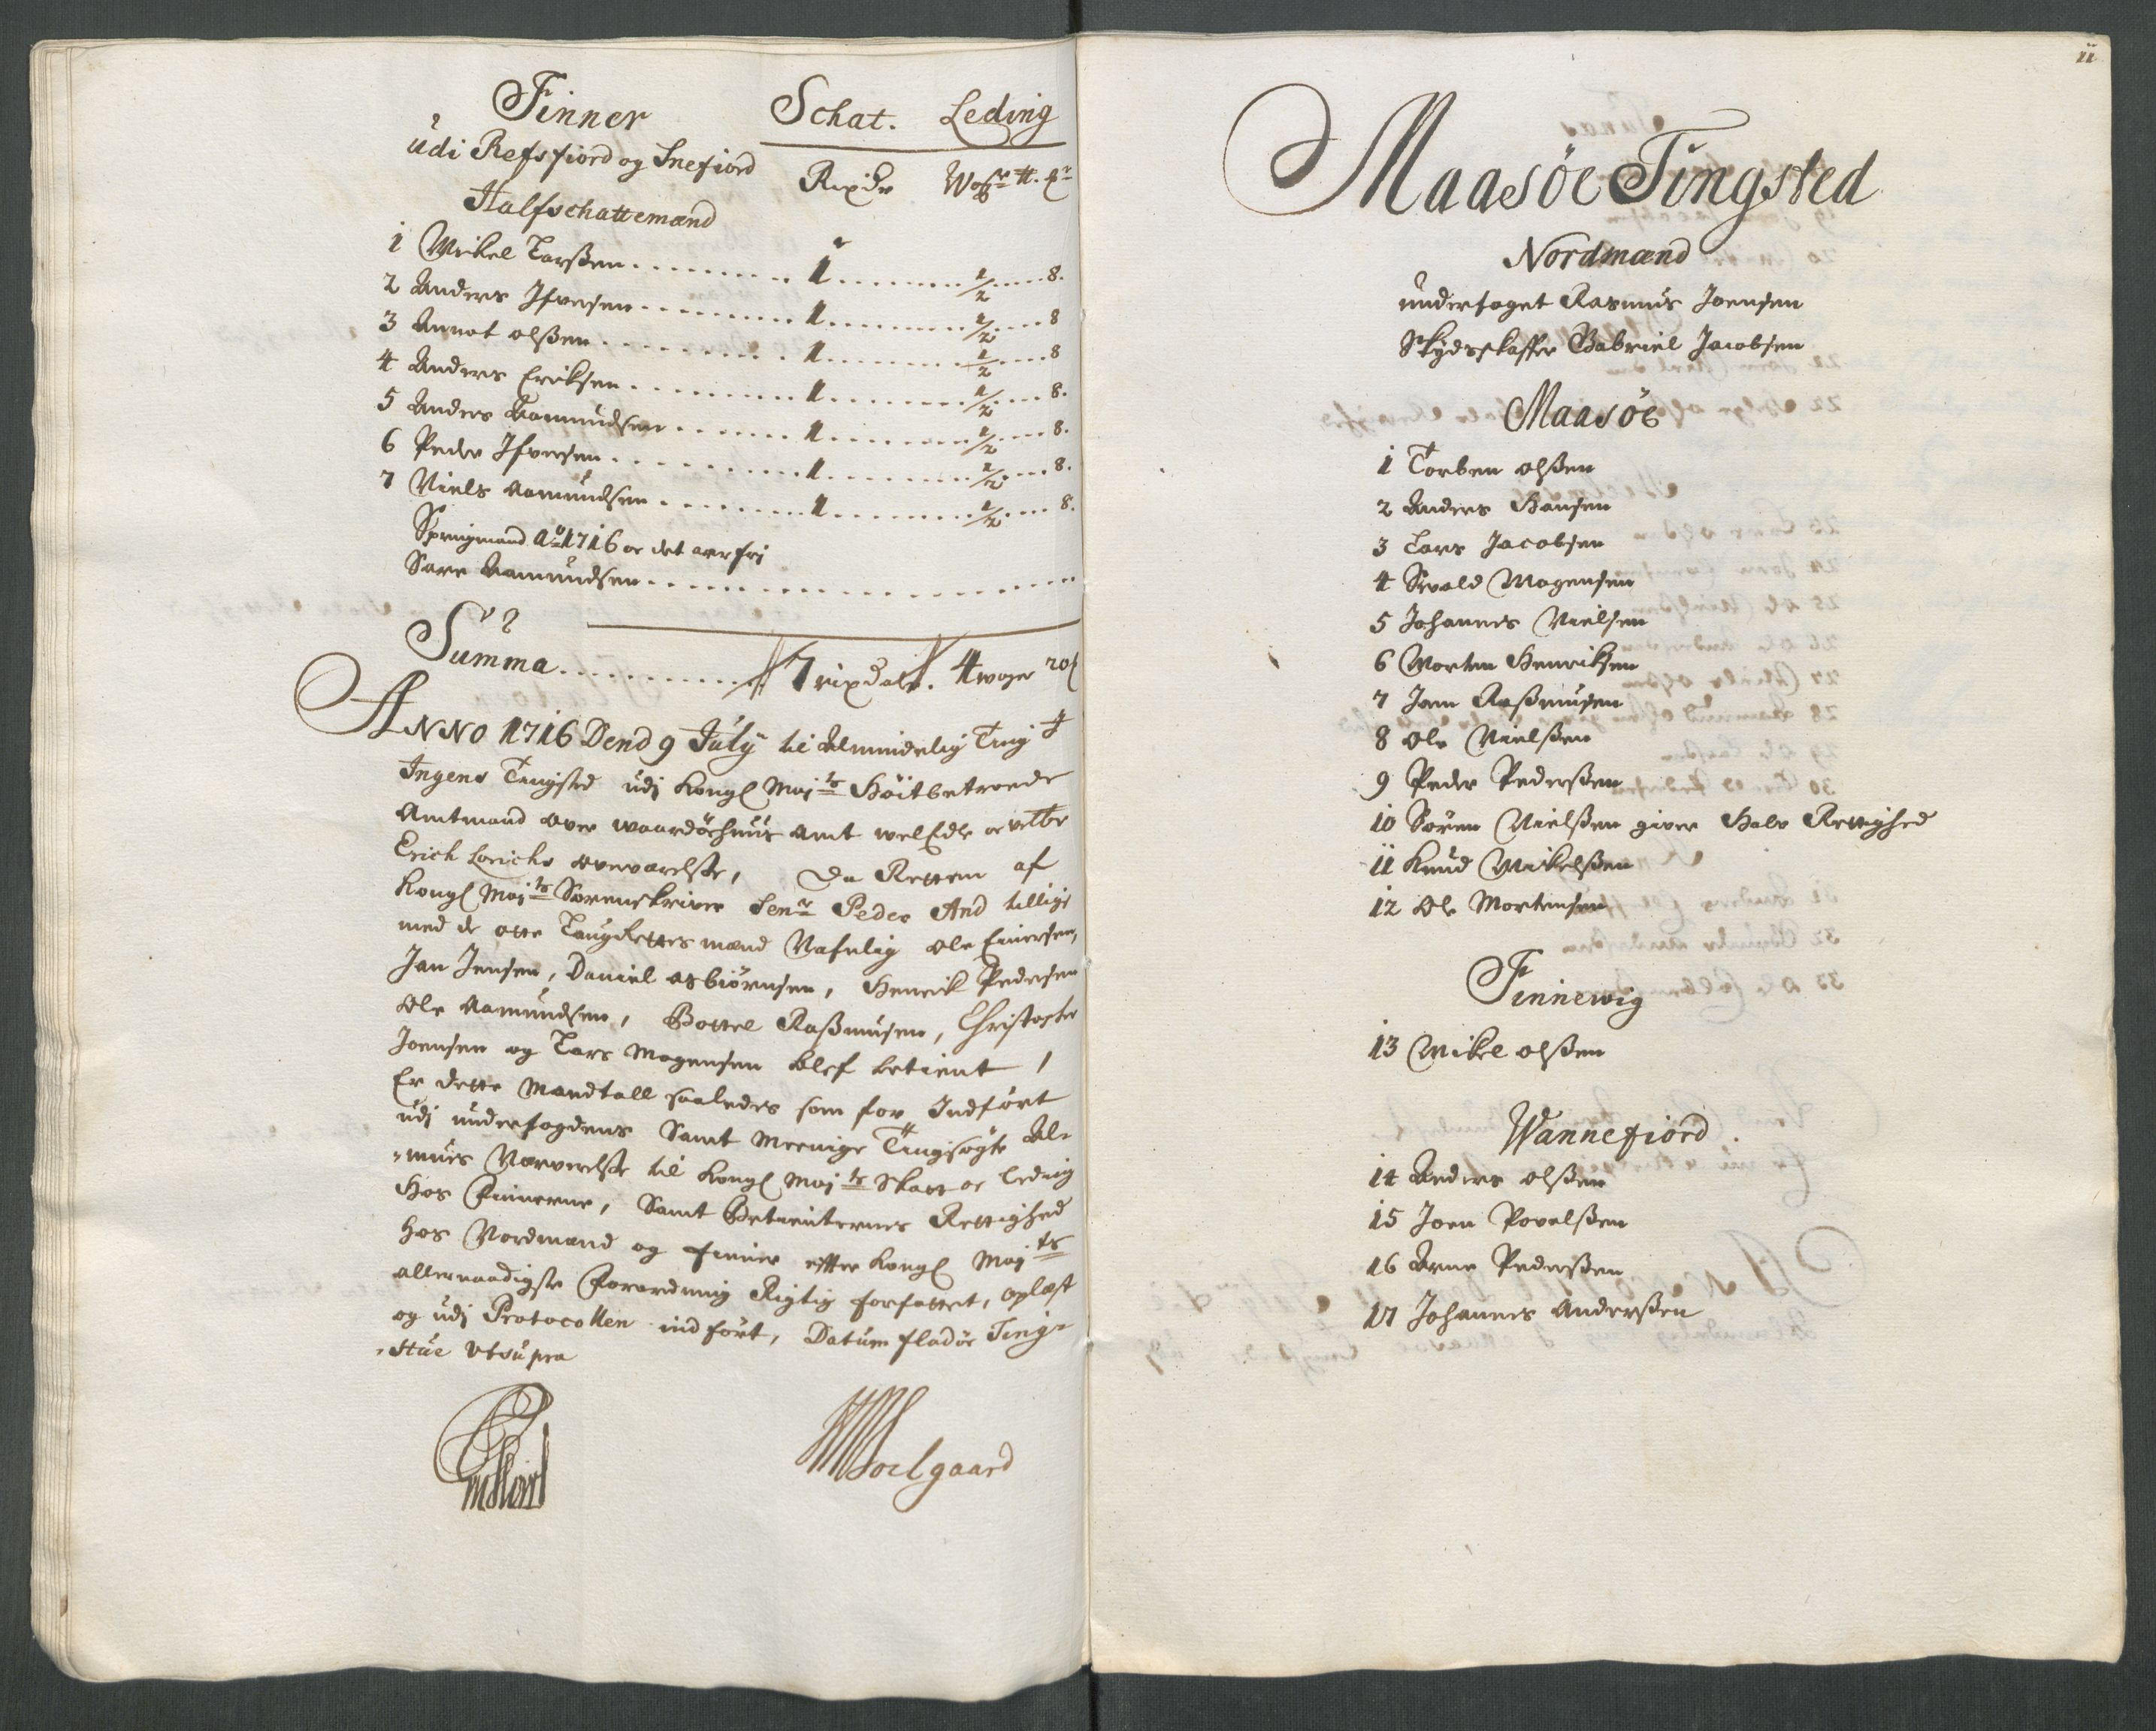 Finner Schat. Leding
udi Refsfiord og Snefiord Rixdr Wog
Halfschattemænd
1 Mickel Larßen 1 1/2 8.
2 Anders Ifversen 1 1/2 8
3 Amot olßen 1 1/2 8
4 Anders Eriksen 1 1/2 8.
5 Anders Aamundsen 1 1/2 8.
6 Peder Ifversen 1 1/2 8.
7 Niels Aamundsen 1 1/2 8.
1716 og det aar frj
Sare Aamundsen
Summa 7 rixdalr. 4 woger
ANNO 1716 Dend 9 July til Almindelig Ting
Ingens Tingsted udj Kongl Maj ts Höitbetroede
Amtmand over waardöehuus Amt welEdle og
Erich Lorichs overværelse, Da Retten af
Kongl Maj ts Sorenskriver Senr Peder And tillige
med de otte LaugRettes mænd Nafnlig Ole Einersen,
Jan Jensen, Daniel asbiörnsen, Henrik Pedersen
Ole Aamundsen, Bottel Raßmusen, Christopher
Joensen og Lars Mogensen blef betient /
Er dette Mandtall saaledes som for Indfört
udj underfogdens Samt Meenige Tingsögte Al-
-mues Nærverelse til Kongl Maj ts Skatt og leding
Hos Finnerne, Samt Betienternes Rettighed
hos Nordmænd og Finner effter Kongl Maj ts
allernaadigste Forordning Rigtig forfattet, oplæst
og udj Protocollen indfört, Datum fladöe Ting-
-stüe Utsupra
Soelgaard
11
Maasöe Tingsted
Nordmænd
underfoget Rasmus Joensen
Skydsskaffer Gabriel Jacobsen
Maasöe
1 Torben olßen
2 Anders Hansen
3 Lars Jacobsen
4 Sivold Mogensen
5 Johannes Nielsen
6 Morten Henriksen
7 Jom Raßmusen
8 Ole Nielßen
9 Peder Pederßen
10 Sören Nielßen giver Halv Rettighed
11 Knud Mickelßen
12 Ole Mortensen
Finnewig
13 Mikel olßen
Wannefiord
14 Anders olßen
15 Joen Povelßen
16 Arne Pederßen
17 Johannes Anderßen